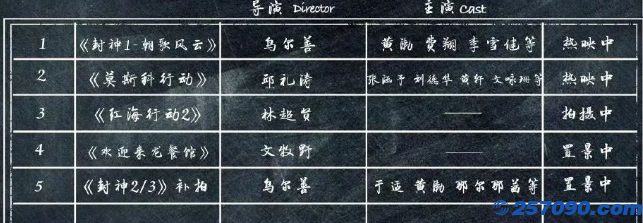 导演 Director 主演 Cast
1 《封神1-朝歌风云》 乌尔善 黄渤 费翔 李雪健等 热映中
2 《莫斯科行动》 邱礼涛 张涵予 刘德华 黄轩 文咏珊等 热映中
3 《红海行动2》 林超贤 —— 拍摄中
4 《欢迎来龙餐馆》 文牧野 —— 置景中
5 《封神2/3》补拍 乌尔善 于适 黄渤 那尔那茜等 置景中
257090.com